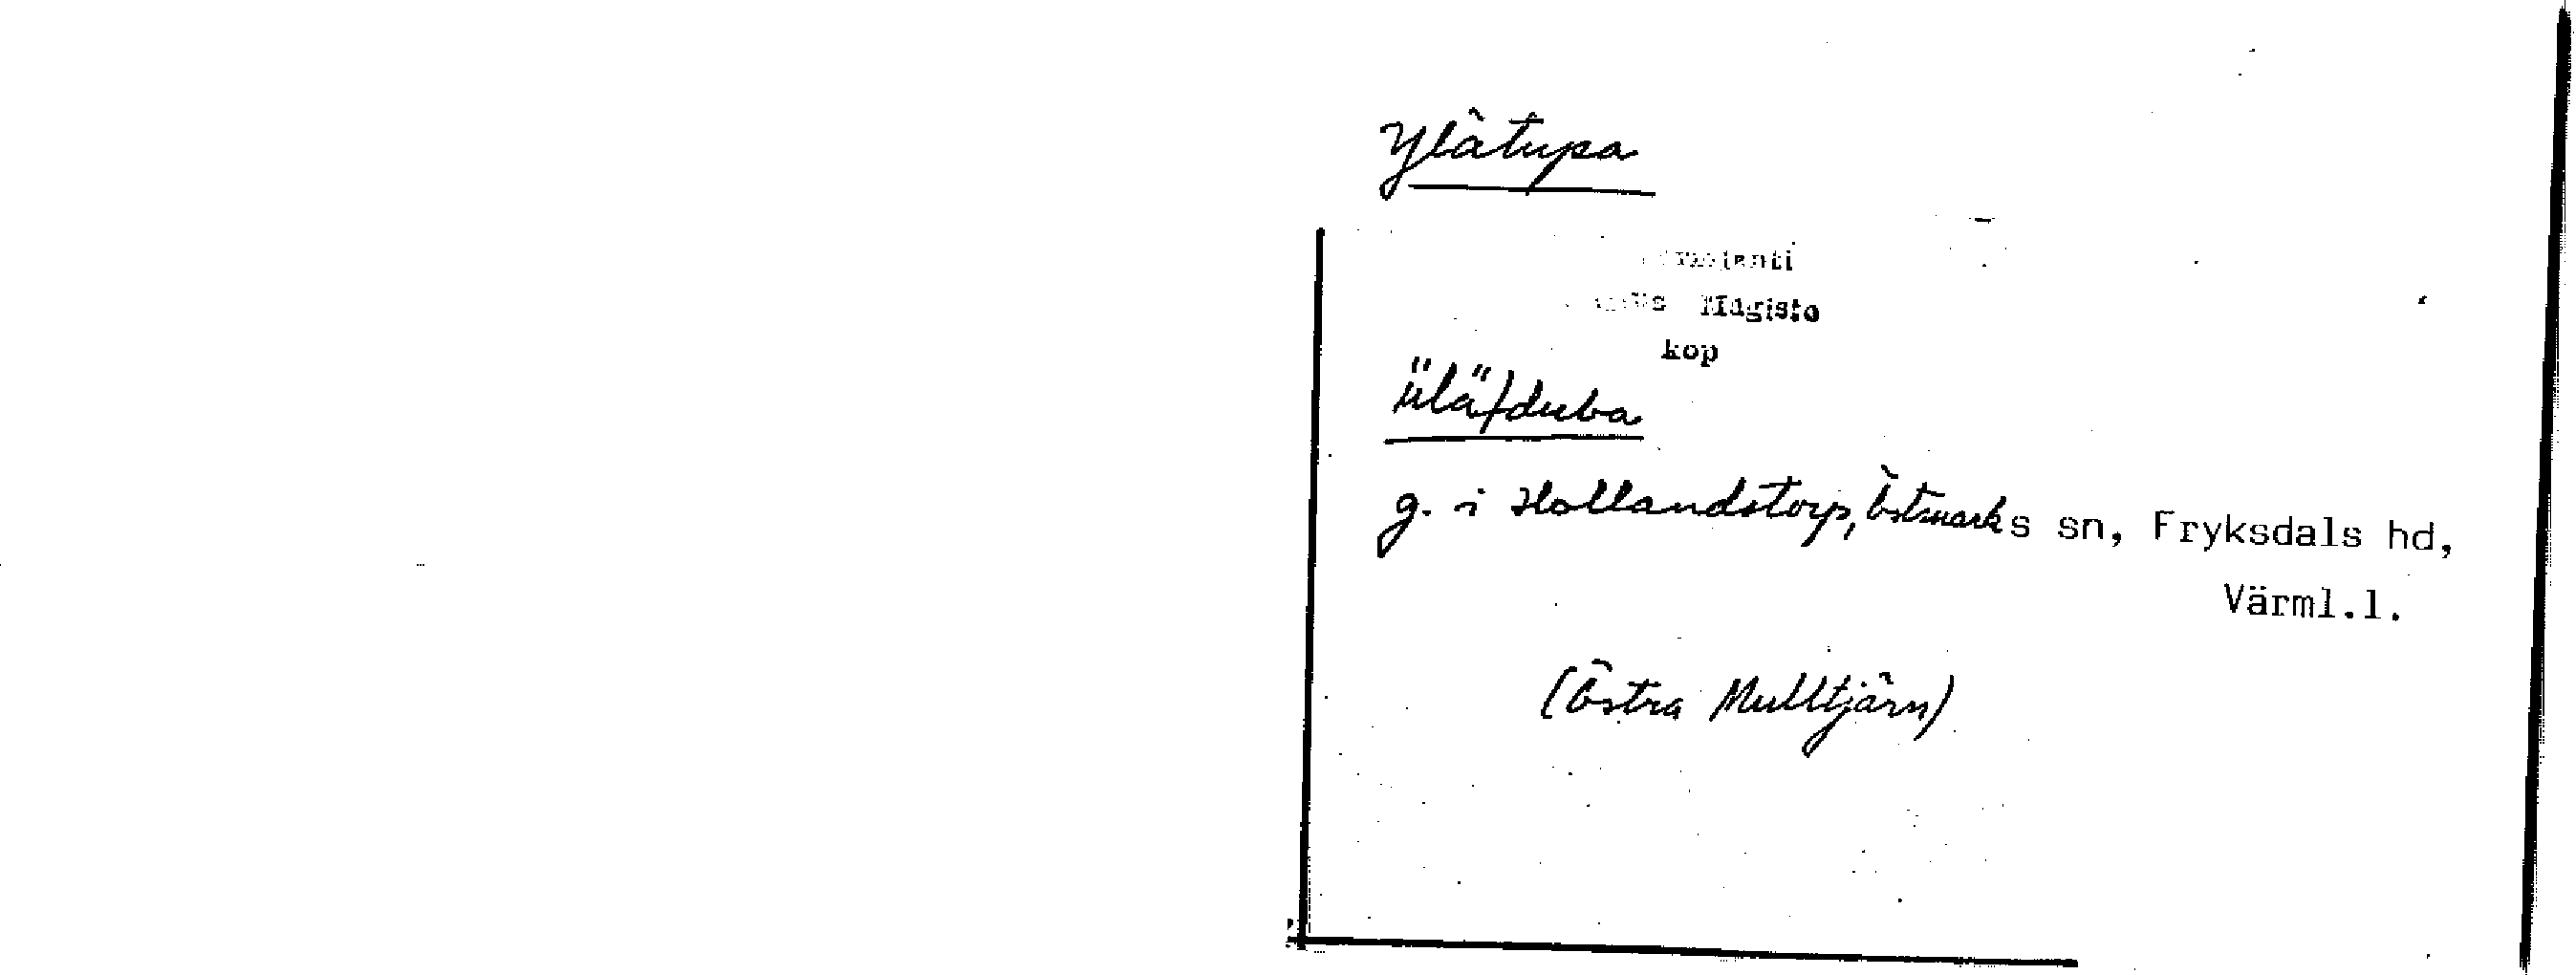 Ylätupa
Mägiste
kop
ülä/duba
g. i Hollandstorp, Östmarks sn, Fryksdals hd,
Värml.l.
(Östra Mulltjärn)